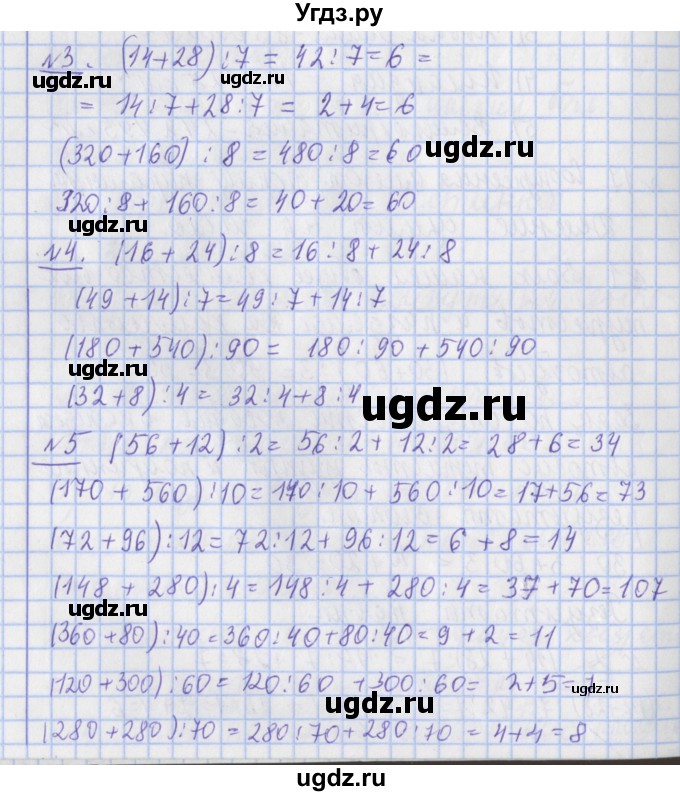 Угдз.ру
№3. (14+28):7 = 42:7=6 =
= 14:7+28:7 = 2+4=6
ugdz.ru
(320+160) : 8 = 480:8=60
ugdz.ru
320:8+ 160:8= 40+20=60
№4. (16+24):8=16:8+24:8
ugdz.ru
(49+14):7=49:7+14:7
(180+540):90= 180:90+540:90
ugdz.ru
(32+8):4= 32:4+8:4
ugdz.ru
№5 (56+12):2= 56:2+12:2= 28+6=34
ugdz.ru
(170+560):10=170:10+560:10=17+56=73
(72+96):12=72:12+96:12=6+8=14
(148+280):4=148:4+280:4=37+70=107
ugdz.ru
(360+80):40=360:40+80:40=9+2=11
(120+300):60=120:60+300:60= 2+5=7
ugdz.ru
(280+280):70=280:70+280:70=4+4=8
ugdz.ru
ugdz.ru